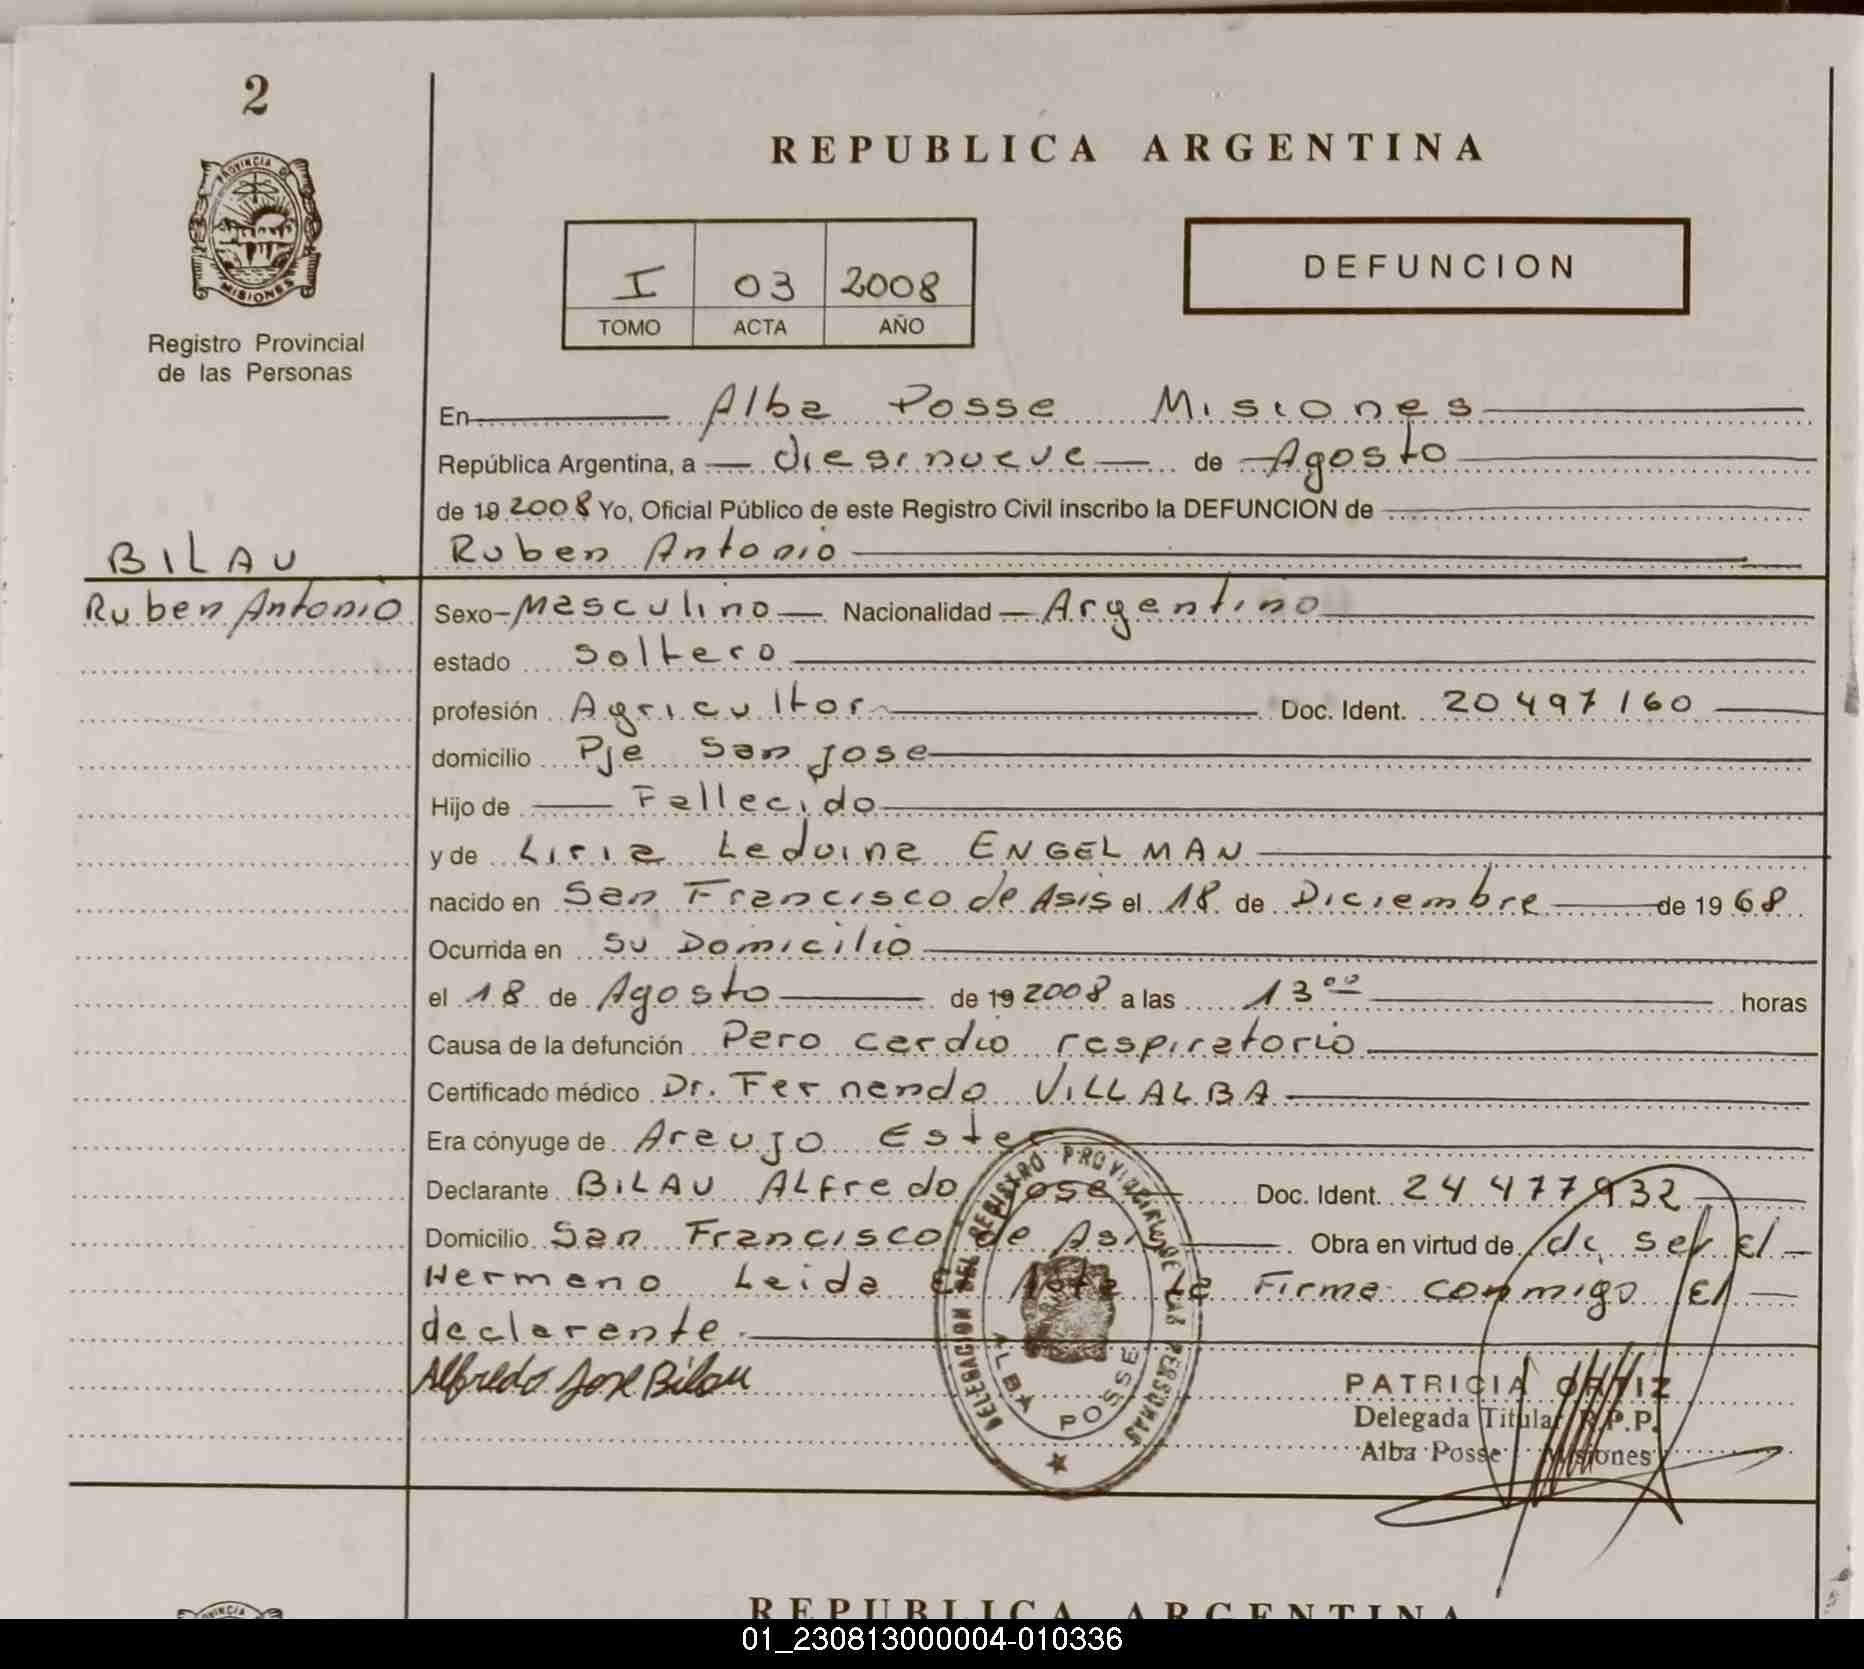 2
PROVINCIA DE
MISIONES
Registro Provincial
de las Personas
REPUBLICA ARGENTINA
I 03 2008
TOMO ACTA AÑO
DEFUNCION
En Alba Posse Misiones
República Argentina, a diesinueve de Agosto
de 19 2008 Yo, Oficial Público de este Registro Civil inscribo la DEFUNCION de
BILAU Ruben Antonio
Ruben Antonio Sexo Masculino Nacionalidad Argentino
estado Soltero
profesión Agricultor Doc. Ident. 20 497 160
domicilio Pje San Jose
Hijo de Fallecido
y de Liria Leduina ENGELMAN
nacido en San Francisco de Asis el 18 de Diciembre de 19 68
Ocurrida en su Domicilio
el 18 de Agosto de 19 2008 a las 13 00 horas
Causa de la defunción Paro cardio respiratorio
Certificado médico Dr. Fernando VILLALBA
Era cónyuge de Araujo Ester
Declarante BILAU ALFredo Jose Doc. Ident. 24 477 932
Domicilio San Francisco de Asis Obra en virtud de de ser el
Hermano Leida el Acta La Firma conmigo El
declarante.
Alfredo Jose Bilau
DELEGACION DEL REGISTRO PROVINCIAL DE LAS PERSONAS
ALBA POSSE
PATRICIA ORTIZ
Delegada Titular R.P.P.
Alba Posse Misiones
REPUBLICA ARGENTINA
01_230813000004-010336